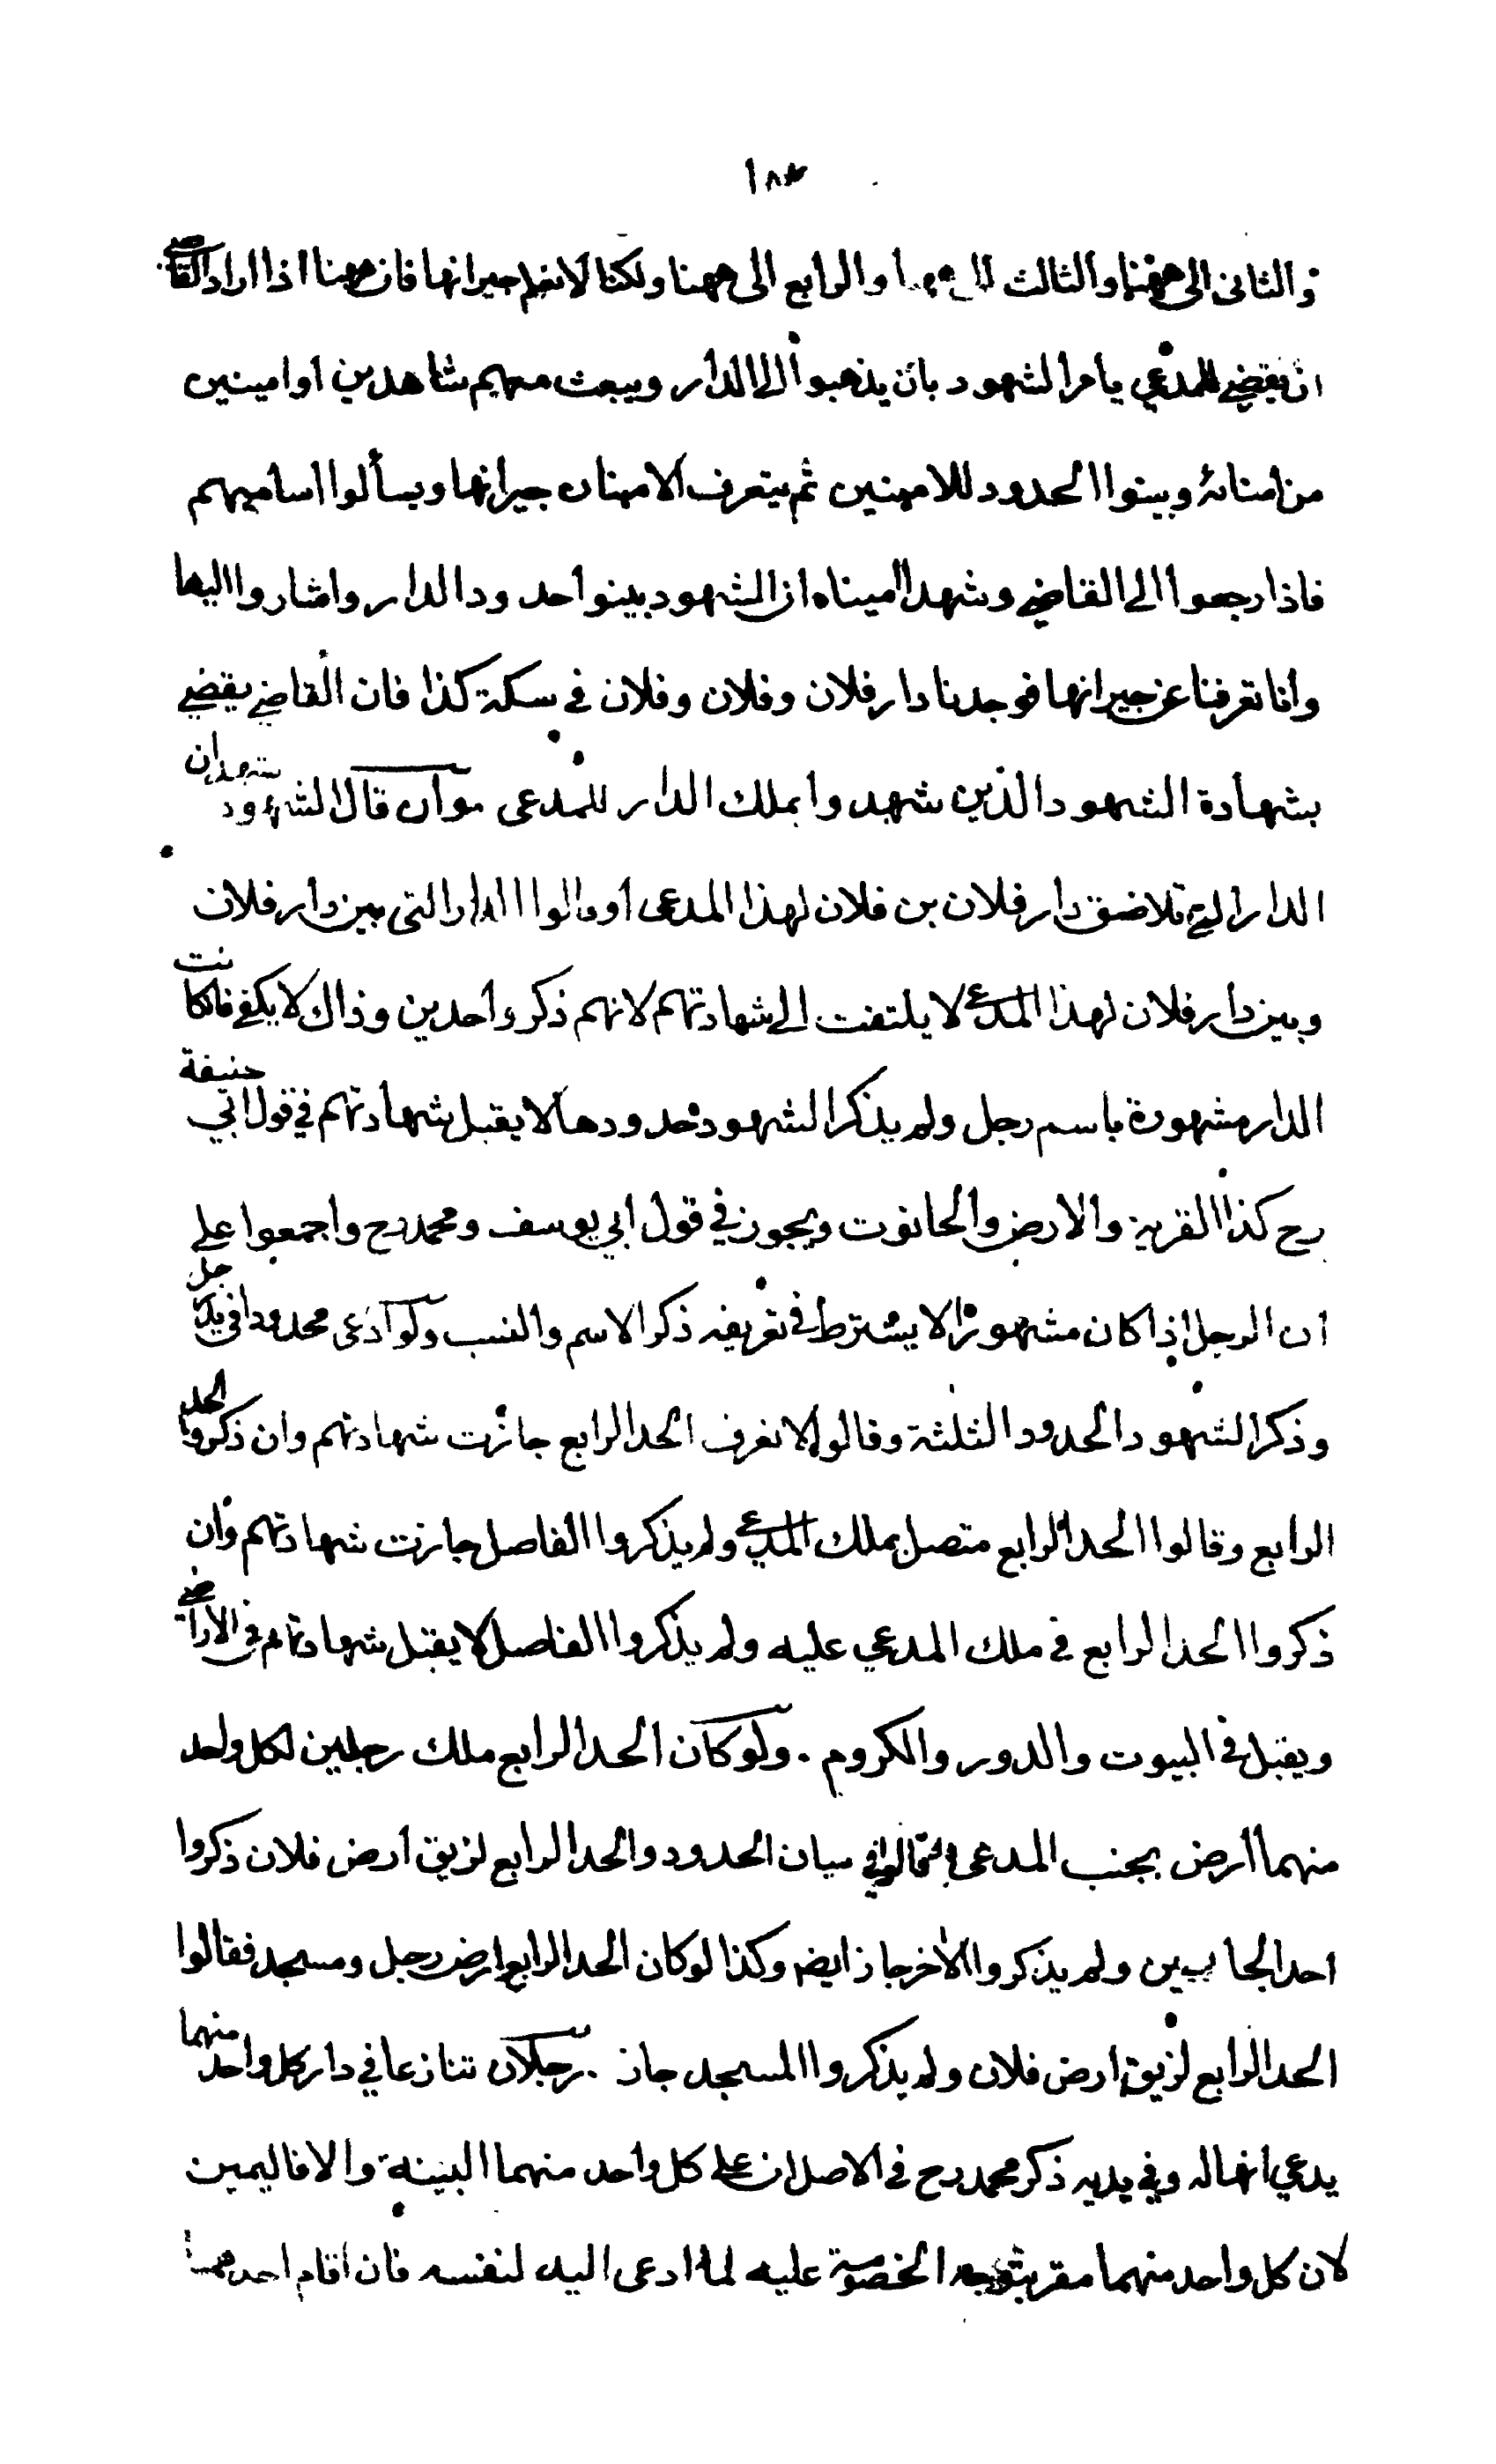 ١٨٣
والثانى الى ههنا والثالث الى ههنا والرابع الى ههنا ولكنا لا نعلم جيرانها فان ههنا اذا اراد القاضي
ان يقضي للمدعي يامر الشهود بان يذهبوا الى الدار ويبعث معهم شاهدين او امينين
من امنائه وبينوا الحدود للامينين ثم يتعرف الامينان جيرانها ويسألوا اساميهم
فاذا رجعوا الى القاضي وشهد اميناه ان الشهود بينوا حدود الدار واشاروا اليها
وانا تعرفنا عن جيرانها فوجدنا دار فلان وفلان وفلان في سكة كذا فان القاضي يقضي
بشهادة الشهود الذين شهدوا بملك الدار للمدعى وان قال الشهود نشهد ان
الدار التي تلاصق دار فلان بن فلان لهذا المدعى او قالوا الدار التى بين دار فلان
وبين دار فلان لهذا المدعي لا يلتفت الى شهادتهم لانهم ذكروا حدين وذاك لا يكفي فان كانت
الدار مشهورة باسم رجل ولم يذكر الشهود حدودها لا يقبل شهادتهم في قول ابي حنيفة
رح كذا القرية والارض والحانوت ويجوز في قول ابي يوسف ومحمد رح واجمعوا على
ان الرجل اذا كان مشهورا لا يشترط في تعريفه ذكر الاسم والنسب ولو ادعى محدودا في يد رجل
وذكر الشهود الحدود الثلثة وقالوا لا نعرف الحد الرابع جازت شهادتهم وان ذكروا الحد
الرابع وقالوا الحد الرابع متصل بملك المدعي ولم يذكروا الفاصل جازت شهادتهم وان
ذكروا الحد الرابع في ملك المدعي عليه ولم يذكروا الفاصل لا يقبل شهادتهم في الاراضي
ويقبل في البيوت والدور والكروم . ولو كان الحد الرابع ملك رجلين لكل واحد
منهما ارض بجنب المدعى فقالوا في بيان الحدود والحد الرابع لزيق ارض فلان ذكروا
احد الجانبين ولم يذكروا الاخر جاز ايضا وكذا لو كان الحد الرابع ارض رجل ومسجد فقالوا
الحد الرابع لزيق ارض فلان ولم يذكروا المسجد جاز . رجلان تنازعا في دار كل واحد منهما
يدعي انها له وفي يديه ذكر محمد رح في الاصل ان على كل واحد منهما البينة والا فاليمين
لان كل واحد منهما مقر بتوجه الخصومة عليه لما ادعى اليد لنفسه فان اقام احدهما